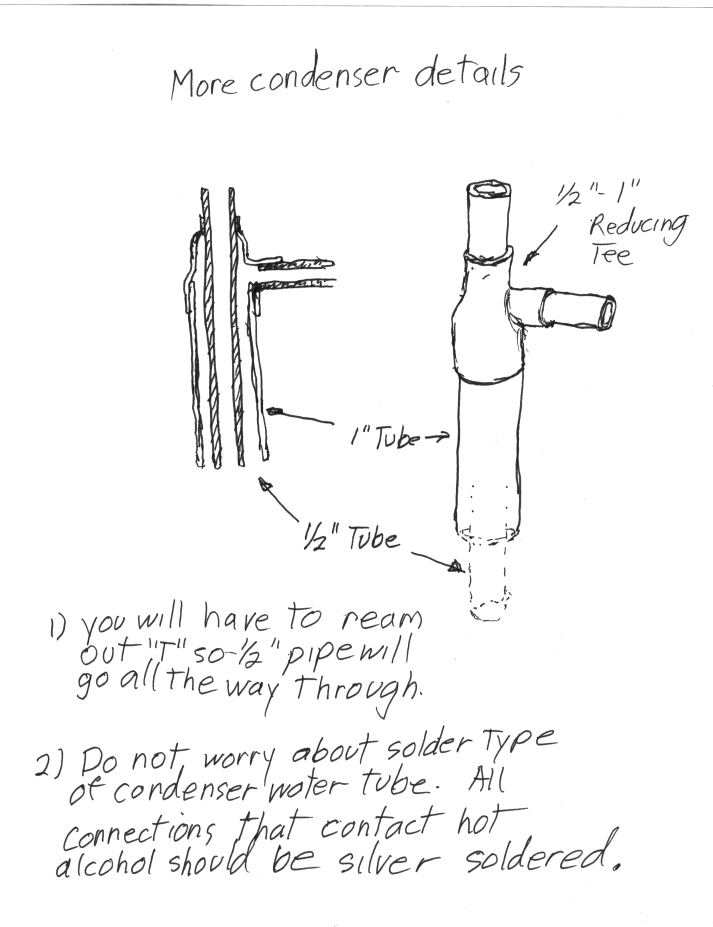 More condenser details
1/2"-1"
Reducing
Tee
1" Tube
1/2" Tube
1) you will have to ream
out "T" so 1/2" pipe will
go all the way through.
2) Do not worry about solder type
of condenser water tube. All
connections that contact hot
alcohol should be silver soldered.